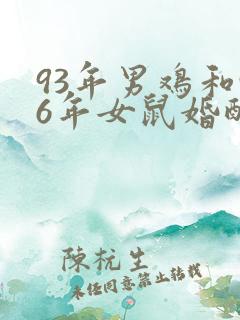 93年男鸡和
6年女鼠婚
陳杬生
未经同意禁止转载